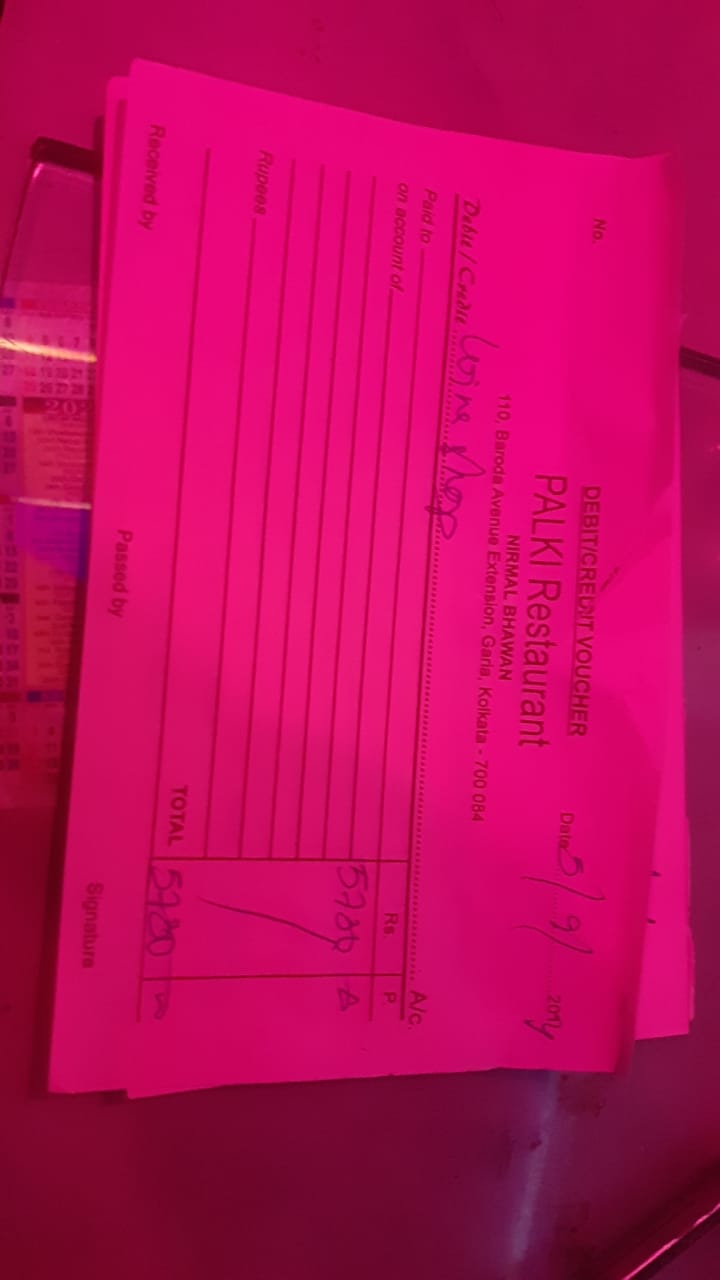 No.
DEBIT/CREDIT VOUCHER
PALKI Restaurant
NIRMAL BHAWAN
110, Baroda Avenue Extension, Garia, Kolkata - 700 084
Date 5/9/ 2024
Debit / Credit wine shop A/c.
Paid to
on account of Rs. P
5780
Rupees
TOTAL 5780
Received by Passed by Signature